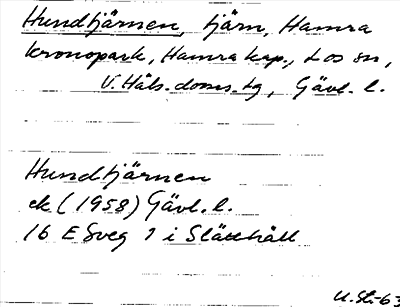 Hundtjärnen, tjärn, Hamra
kronopark, Hamra kap., Los sn,
V. Häls. doms. tg, Gävl. l.
Hundtjärnen
ek (1958) Gävl. l.
16 E Sveg 1 i Slätthåll
U. St.-63